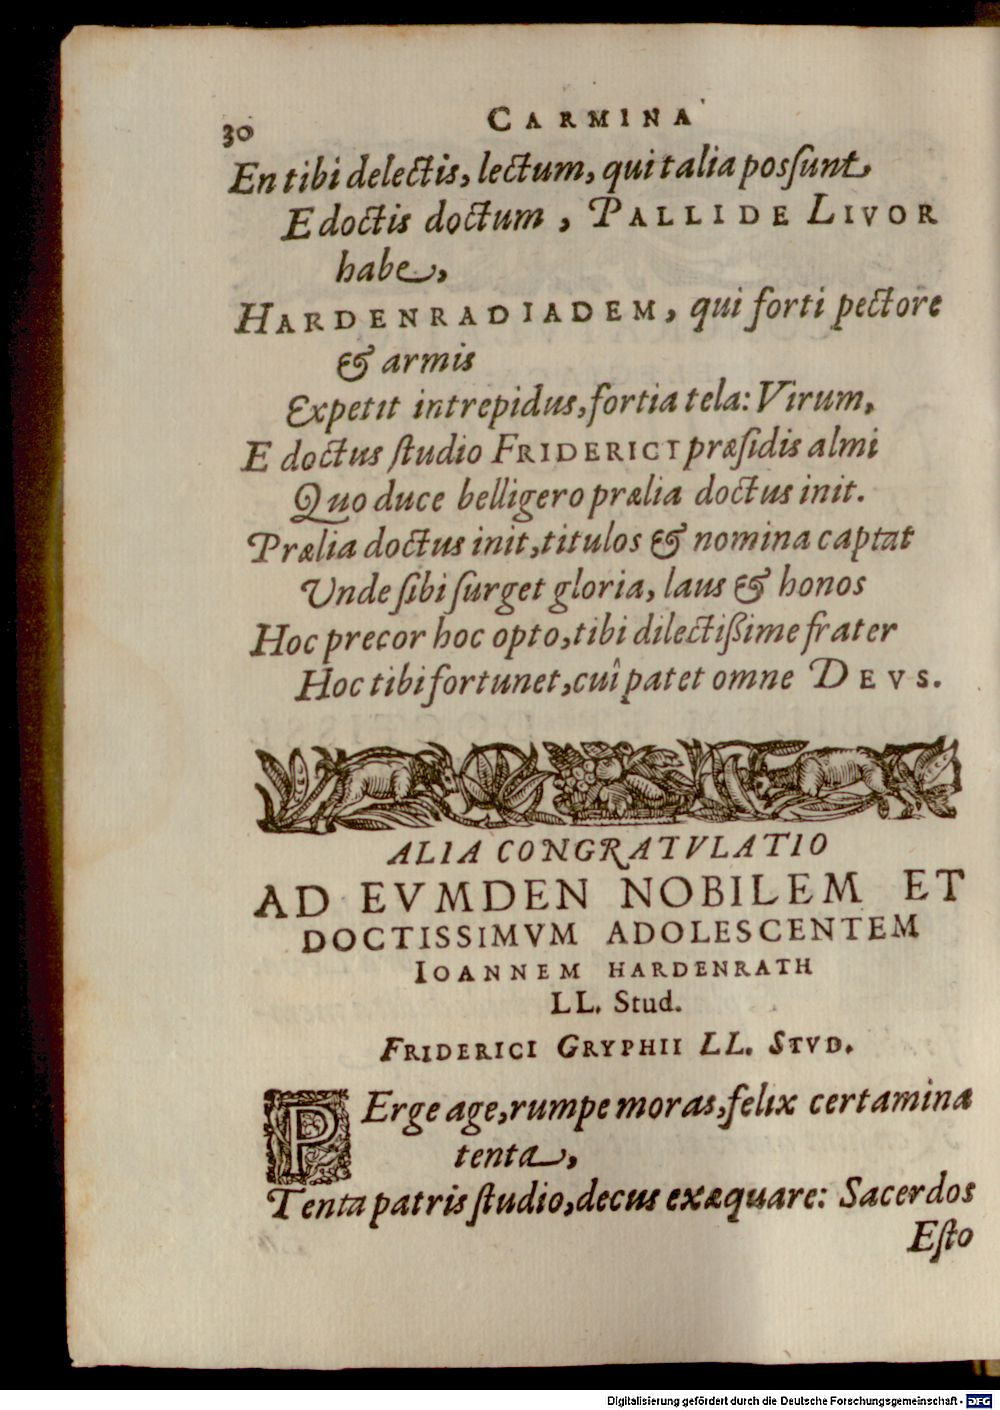 30
CARMINA
En tibi delectis, lectum, qui talia posſunt,
E doctis doctum, PALLIDE LIVOR
habe,
HARDENRADIADEM, qui forti pectore
& armis
Expetit intrepidus, fortia tela: Virum,
E doctus ſtudio FRIDERICI præſidis almi
Quo duce belligero prælia doctus init.
Prælia doctus init, titulos & nomina captat
Unde ſibi ſurget gloria, laus & honos
Hoc precor hoc opto, tibi dilectißime frater
Hoc tibi fortunet, cui patet omne DEVS.
ALIA CONGRATVLATIO
AD EVMDEN NOBILEM ET
DOCTISSIMVM ADOLESCENTEM
IOANNEM HARDENRATH
LL. Stud.
FRIDERICI GRYPHII LL. STVD.
PErge age, rumpe moras, felix certamina
tenta,
Tenta patris ſtudio, decus exæquare: Sacerdos
Eſto
Digitalisierung gefördert durch die Deutsche Forschungsgemeinschaft - DFG